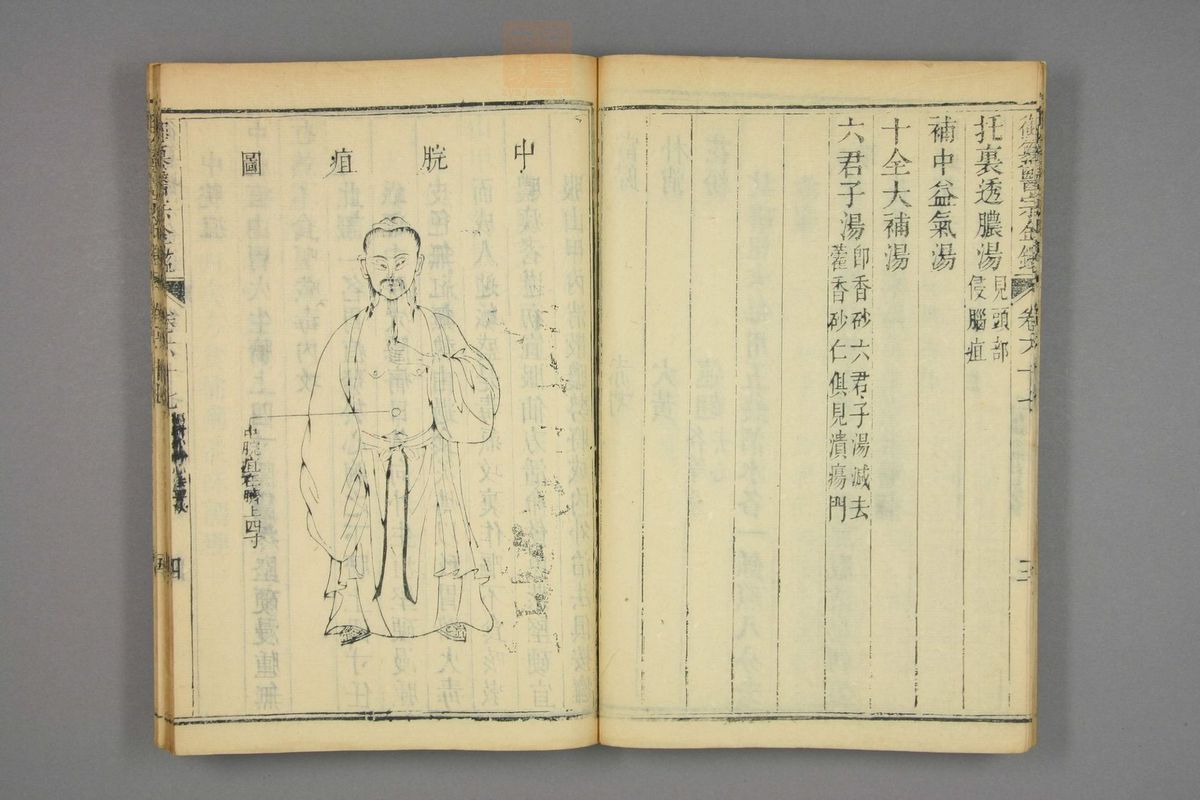 御纂醫宗金鑑 卷六十七
托裏透膿湯 見頭部侵腦疽
補中益氣湯
十全大補湯
六君子湯 即香砂六君子湯減去藿香砂仁俱見潰瘍門
三
中脘疽圖
中脘疽在臍上四寸
四